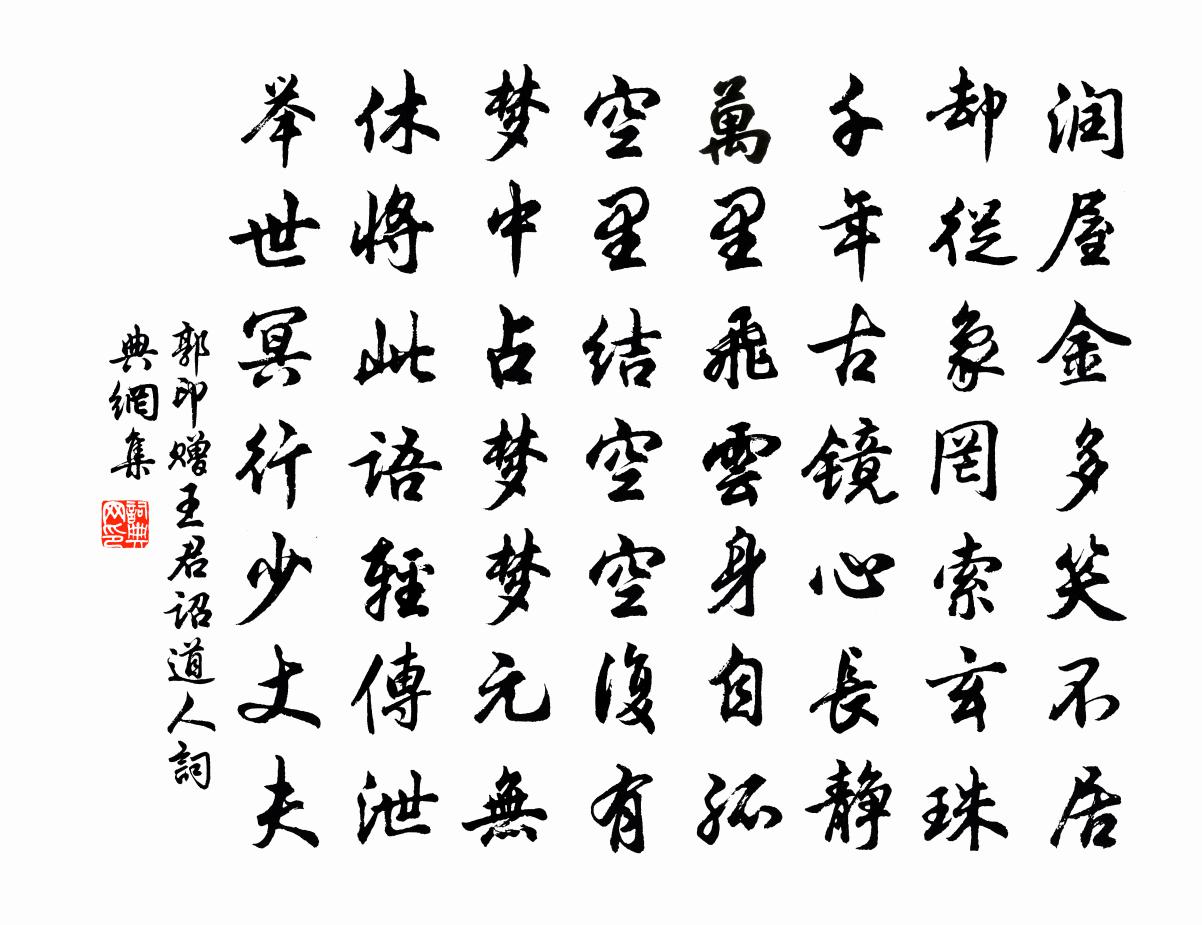 润屋金多笑不居
却從象罔索玄珠
千年古镜心長静
萬里飛雲身自孤
空里结空空復有
梦中占梦梦元無
休将此語輕傳泄
举世冥行少丈夫
郭印赠王君诏道人詞
典網集
詞典
网印